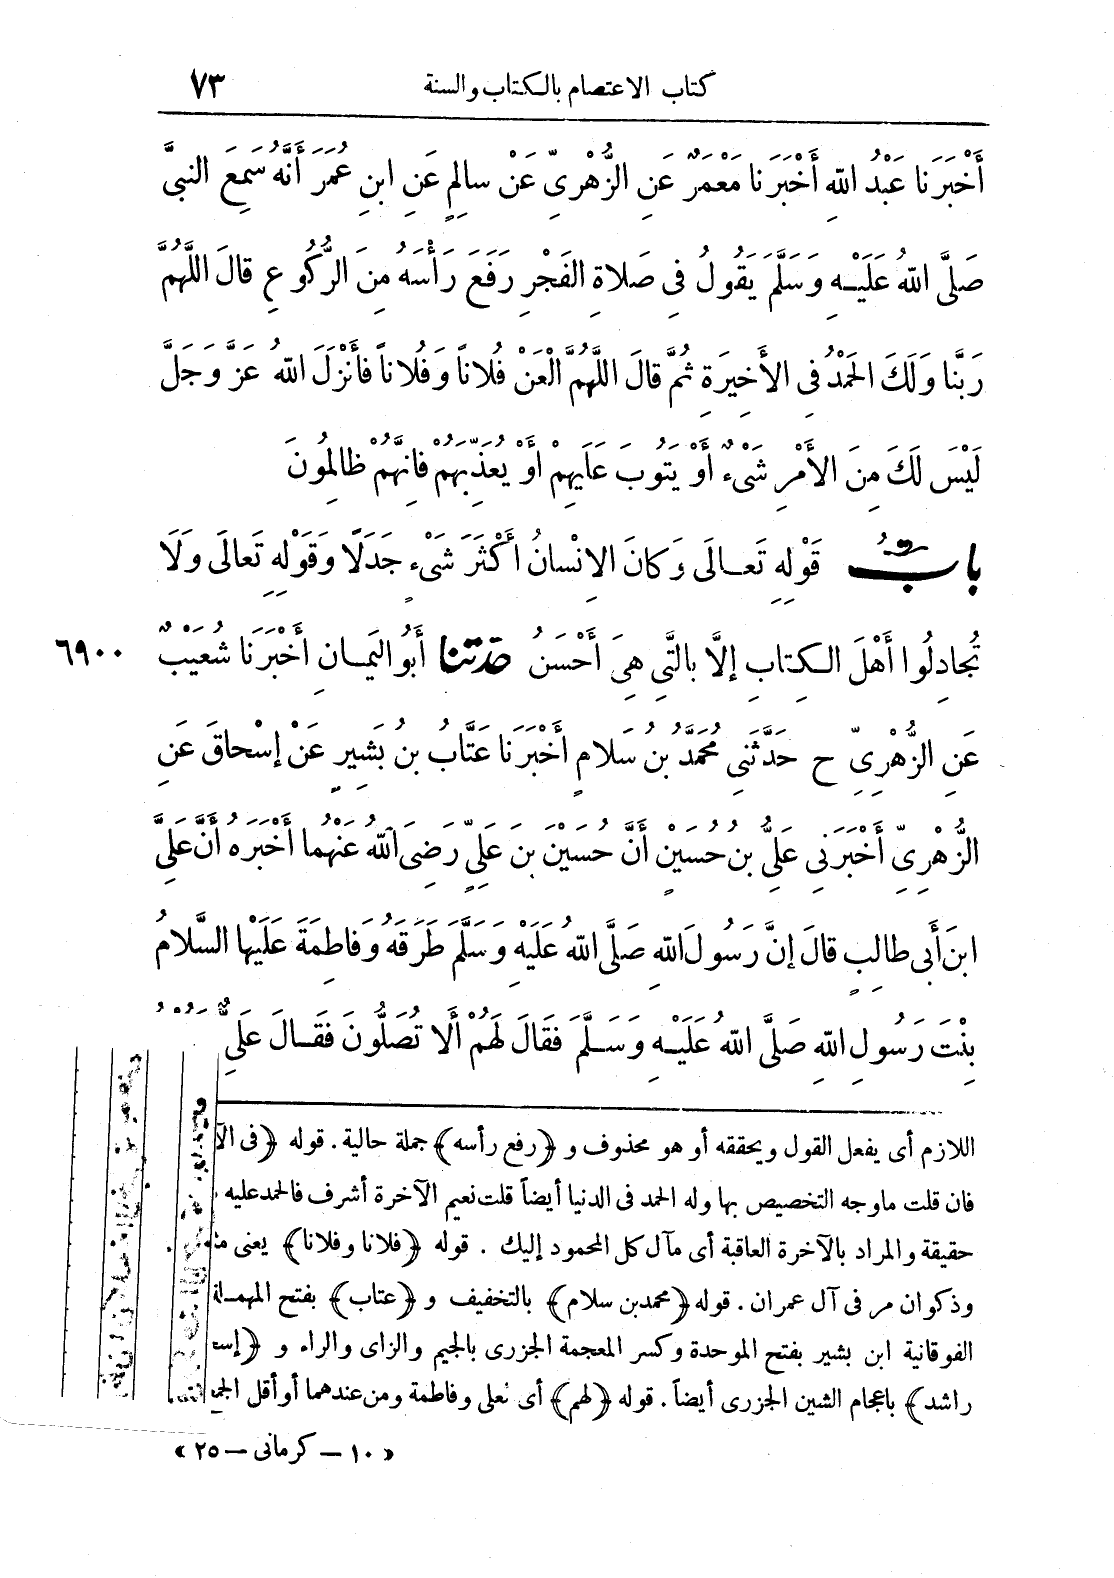 كتاب الاعتصام بالكتاب والسنة ٧٣
أَخْبَرَنا عَبْدُ اللهِ أَخْبَرَنا مَعْمَرٌ عَنِ الزُّهْرِىِّ عَنْ سالِمٍ عَنِ ابنِ عُمَرَ أَنَّهُ سَمِعَ النبىَّ
صَلَّى اللهُ عَلَيْهِ وَسَلَّمَ يَقُولُ فِى صَلاةِ الفَجْرِ رَفَعَ رَأْسَهُ مِنَ الرُّكُوعِ قالَ اللَّهُمَّ
رَبَّنا وَلَكَ الحَمْدُ فِى الأَخِيرَةِ ثُمَّ قالَ اللَّهُمَّ الْعَنْ فُلاناً وَفُلاناً فأَنْزَلَ اللهُ عَزَّ وَجَلَّ
لَيْسَ لَكَ مِنَ الأَمْرِ شَىْءٌ أَوْ يَتُوبَ عَلَيهِمْ أَوْ يُعَذِّبَهُمْ فَإِنَّهُمْ ظالِمُونَ
بابُ قَوْلِهِ تَعالَى وَكانَ الإِنْسانُ أَكْثَرَ شَىْءٍ جَدَلًا وَقَوْلِهِ تَعالَى وَلَا
تُجادِلُوا أَهْلَ الكِتابِ إلَّا بالَّتِى هِىَ أَحْسَنُ حَدَّثَنا أَبُو اليَمانِ أَخْبَرَنا شُعَيْبٌ ٦٩٠٠
عَنِ الزُّهْرِىِّ ح حَدَّثَنِى مُحَمَّدُ بنُ سَلامٍ أَخْبَرَنا عَتَّابُ بنُ بَشِيرٍ عَنْ إسْحاقَ عَنِ
الزُّهْرِىِّ أَخْبَرَنِى عَلِىُّ بنُ حُسَيْنٍ أَنَّ حُسَيْنَ بنَ عَلِىٍّ رَضِىَ اللهُ عَنْهُما أَخْبَرَهُ أَنَّ عَلِىَّ
ابنَ أَبِى طالِبٍ قالَ إنَّ رَسُولَ اللهِ صَلَّى اللهُ عَلَيْهِ وَسَلَّمَ طَرَقَهُ وَفاطِمَةَ عَلَيْها السَّلامُ
بِنْتَ رَسُولِ اللهِ صَلَّى اللهُ عَلَيْهِ وَسَلَّمَ فَقالَ لَهُمْ أَلَا تُصَلُّونَ فَقالَ عَلِىٌّ
اللازم أى يفعل القول ويحققه أو هو محذوف و (رفع رأسه) جملة حالية. قوله (فى الآ
فان قلت ماوجه التخصيص بها وله الحمد فى الدنيا أيضاً قلت نعيم الآخرة أشرف فالحمدعليه
حقيقة والمراد بالآخرة العاقبة أى مآل كل المحمود إليك . قوله (فلانا وفلانا) يعنى
وذكوان مر فى آل عمران . قوله (محمدبن سلام) بالتخفيف و (عتاب) بفتح المهملة
الفوقانية ابن بشير بفتح الموحدة وكسر المعجمة الجزرى بالجيم والزاى والراء و (إسـ
راشد) باعجام الشين الجزرى أيضاً . قوله (لهم) أى لعلى وفاطمة ومن عندهما أو أقل الجمـ
« ١٠ – كرمانى – ٢٥ »